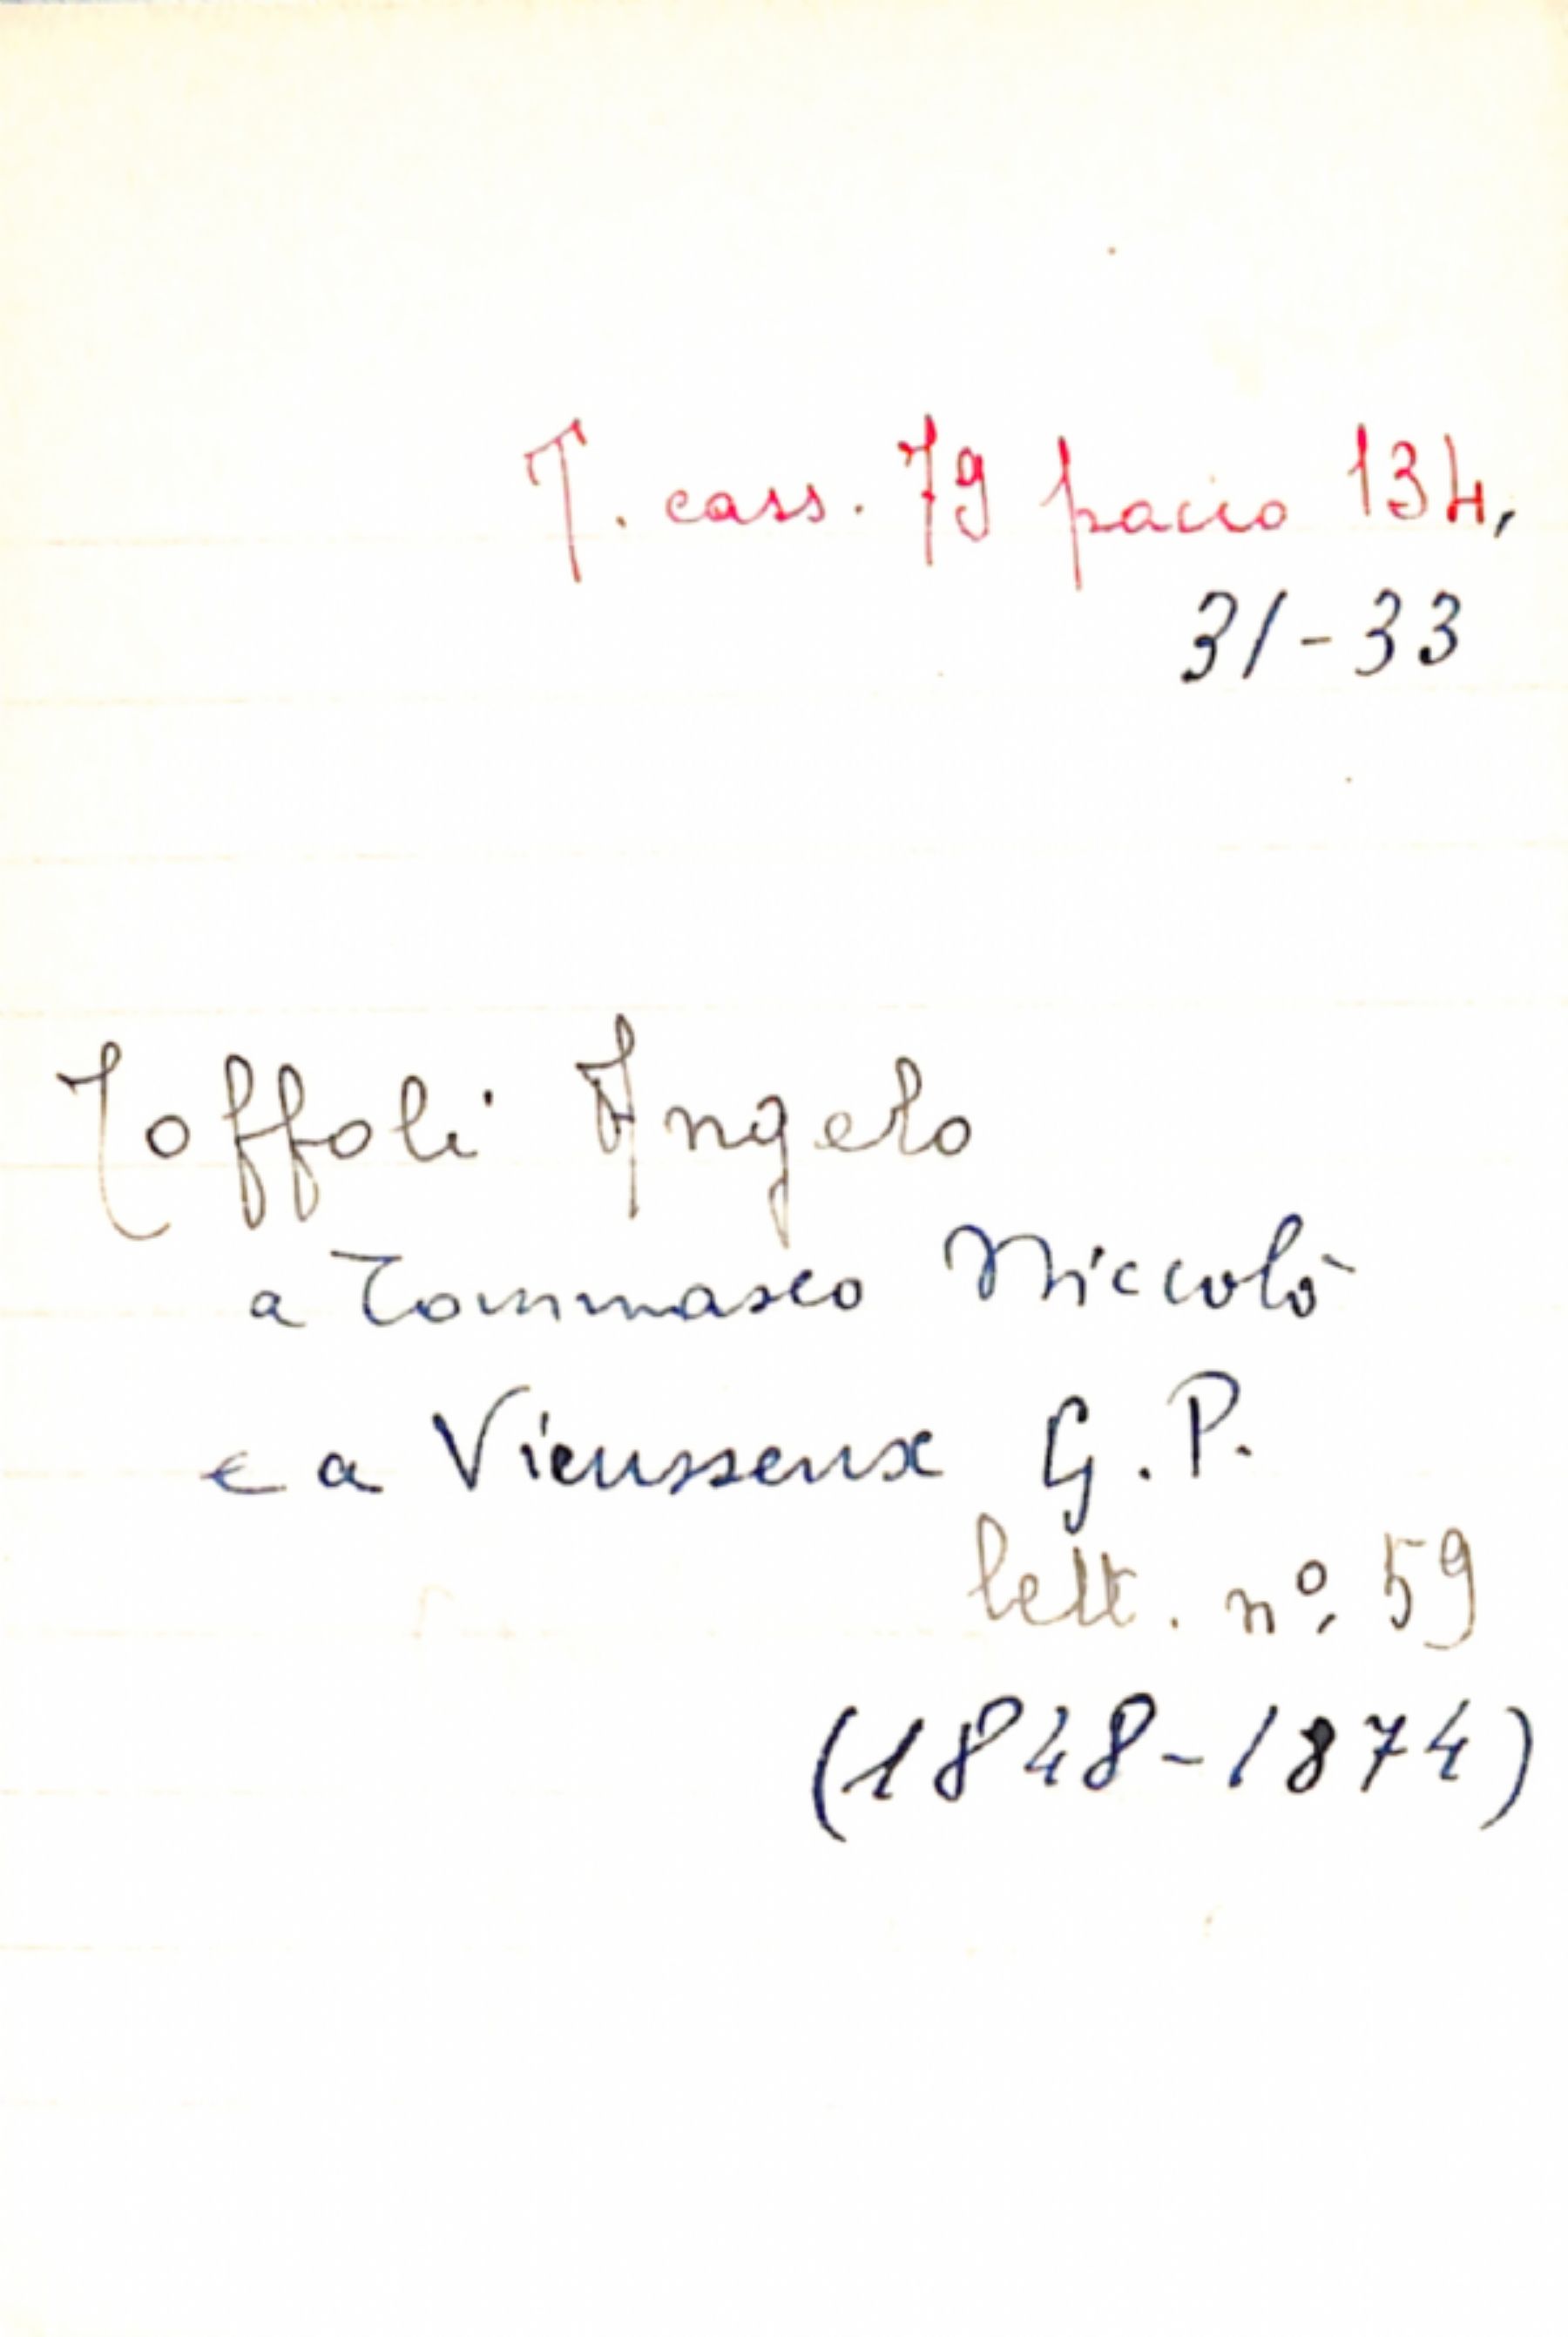 T. cass. 79 pacco 134,
31-33
Toffoli Angelo
a Tommaseo Niccolò
e a Vieusseux G. P.
lett. nº. 59
(1848-1874)